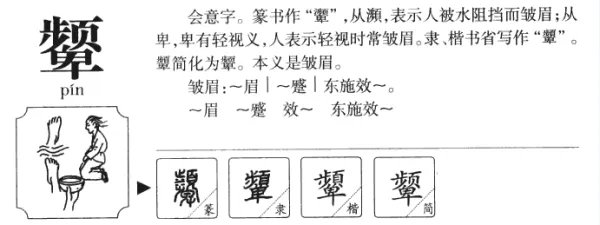 颦
pín
会意字。篆书作“顰”,从濒,表示人被水阻挡而皱眉;从
卑,卑有轻视义,人表示轻视时常皱眉。隶、楷书省写作“顰”。
顰简化为颦。本义是皱眉。
皱眉:~眉|~蹙|东施效~。
~眉 ~蹙 效~ 东施效~
顰 篆 顰 隶 顰 楷 颦 简